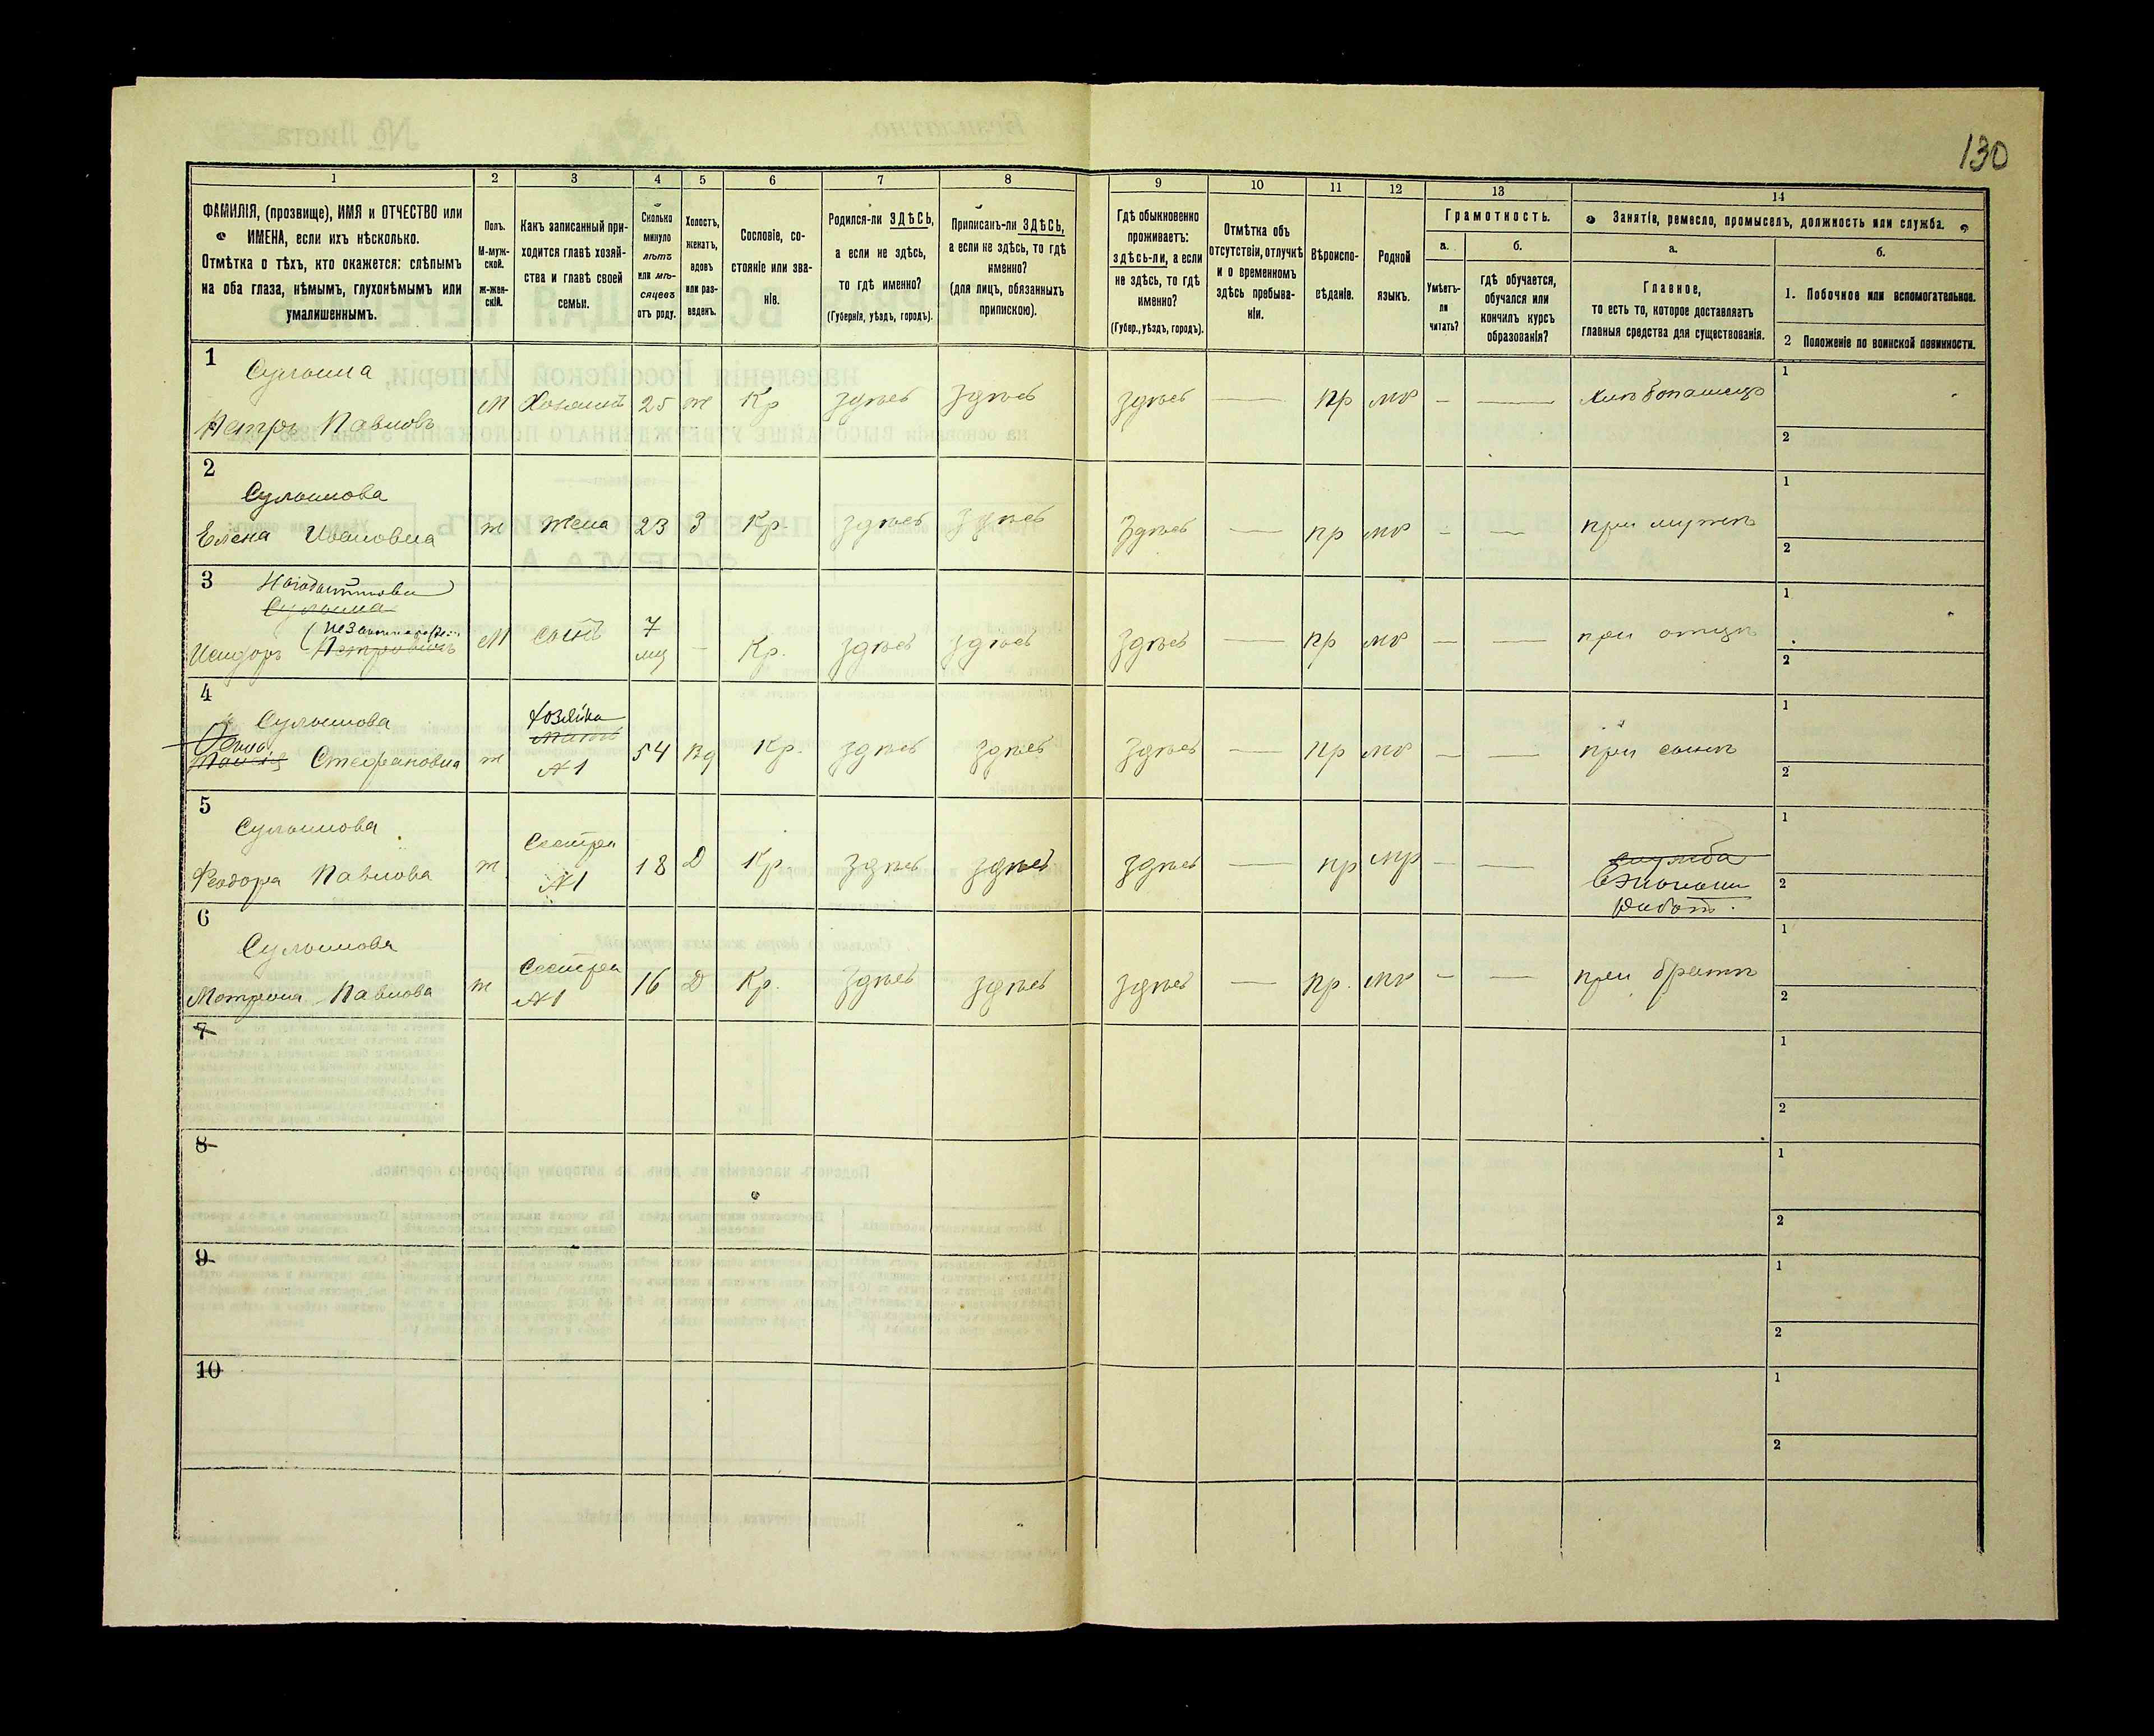 130
1 2 3 4 5 6 7 8 9 10 11 12 13 14
ФАМИЛІЯ, (прозвище), ИМЯ и ОТЧЕСТВО или
ИМЕНА, если ихъ нѣсколько.
Отмѣтка о тѣхъ, кто окажется: слѣпымъ
на оба глаза, нѣмымъ, глухонѣмымъ или
умалишеннымъ.
Полъ.
М-муж-
ской.
ж-жен-
скій.
Какъ записанный при-
ходится главѣ хозяй-
ства и главѣ своей
семьи.
Сколько
минуло
лѣтъ
или мѣ-
сяцевъ
отъ роду.
Холостъ,
женатъ,
вдовъ
или раз-
веденъ.
Сословіе, со-
стояніе или зва-
ніе.
Родился-ли ЗДѢСЬ,
а если не здѣсь,
то гдѣ именно?
(Губернія, уѣздъ, городъ).
Приписанъ-ли ЗДѢСЬ,
а если не здѣсь, то гдѣ
именно?
(для лицъ, обязанныхъ
припискою).
Гдѣ обыкновенно
проживаетъ:
здѣсь-ли, а если
не здѣсь, то гдѣ
именно?
(Губер., уѣздъ, городъ).
Отмѣтка объ
отсутствіи, отлучкѣ
и о временномъ
здѣсь пребыва-
ніи.
Вѣроиспо-
вѣданіе.
Родной
языкъ.
Грамотность.
а.
Умѣетъ-
ли
читать?
б.
гдѣ обучается,
обучался или
кончилъ курсъ
образованія?
Занятіе, ремесло, промыселъ, должность или служба.
а.
Главное,
то есть то, которое доставляетъ
главныя средства для существованія.
б.
1. Побочное или вспомогательное.
2 Положеніе по воинской повинности.
1
Петръ Павловъ
М Хозяинъ 25 ж Кр здѣсь здѣсь здѣсь — пр мр — — Хлѣбопашецъ
1
2
2
Елена Ивановна
ж жена 23 З Кр. здѣсь здѣсь здѣсь — пр мр — — при мужѣ
1
2
3
Исидоръ Петровичъ
М сынъ 7 мц — Кр. здѣсь здѣсь здѣсь — пр мр — — при отцѣ
1
2
4
Стефановна
ж хозяйка мать №1 54 вд Кр. здѣсь здѣсь здѣсь — пр мр — — при сынѣ
1
2
5
Феодора Павлова
ж Сестра №1 18 Д Кр. здѣсь здѣсь здѣсь — пр мр — — служба
1
2
6
Мотрона Павлова
ж Сестра №1 16 Д Кр. здѣсь здѣсь здѣсь — пр. мр — — при братѣ
1
2
7
1
2
8
1
2
9
1
2
10
1
2